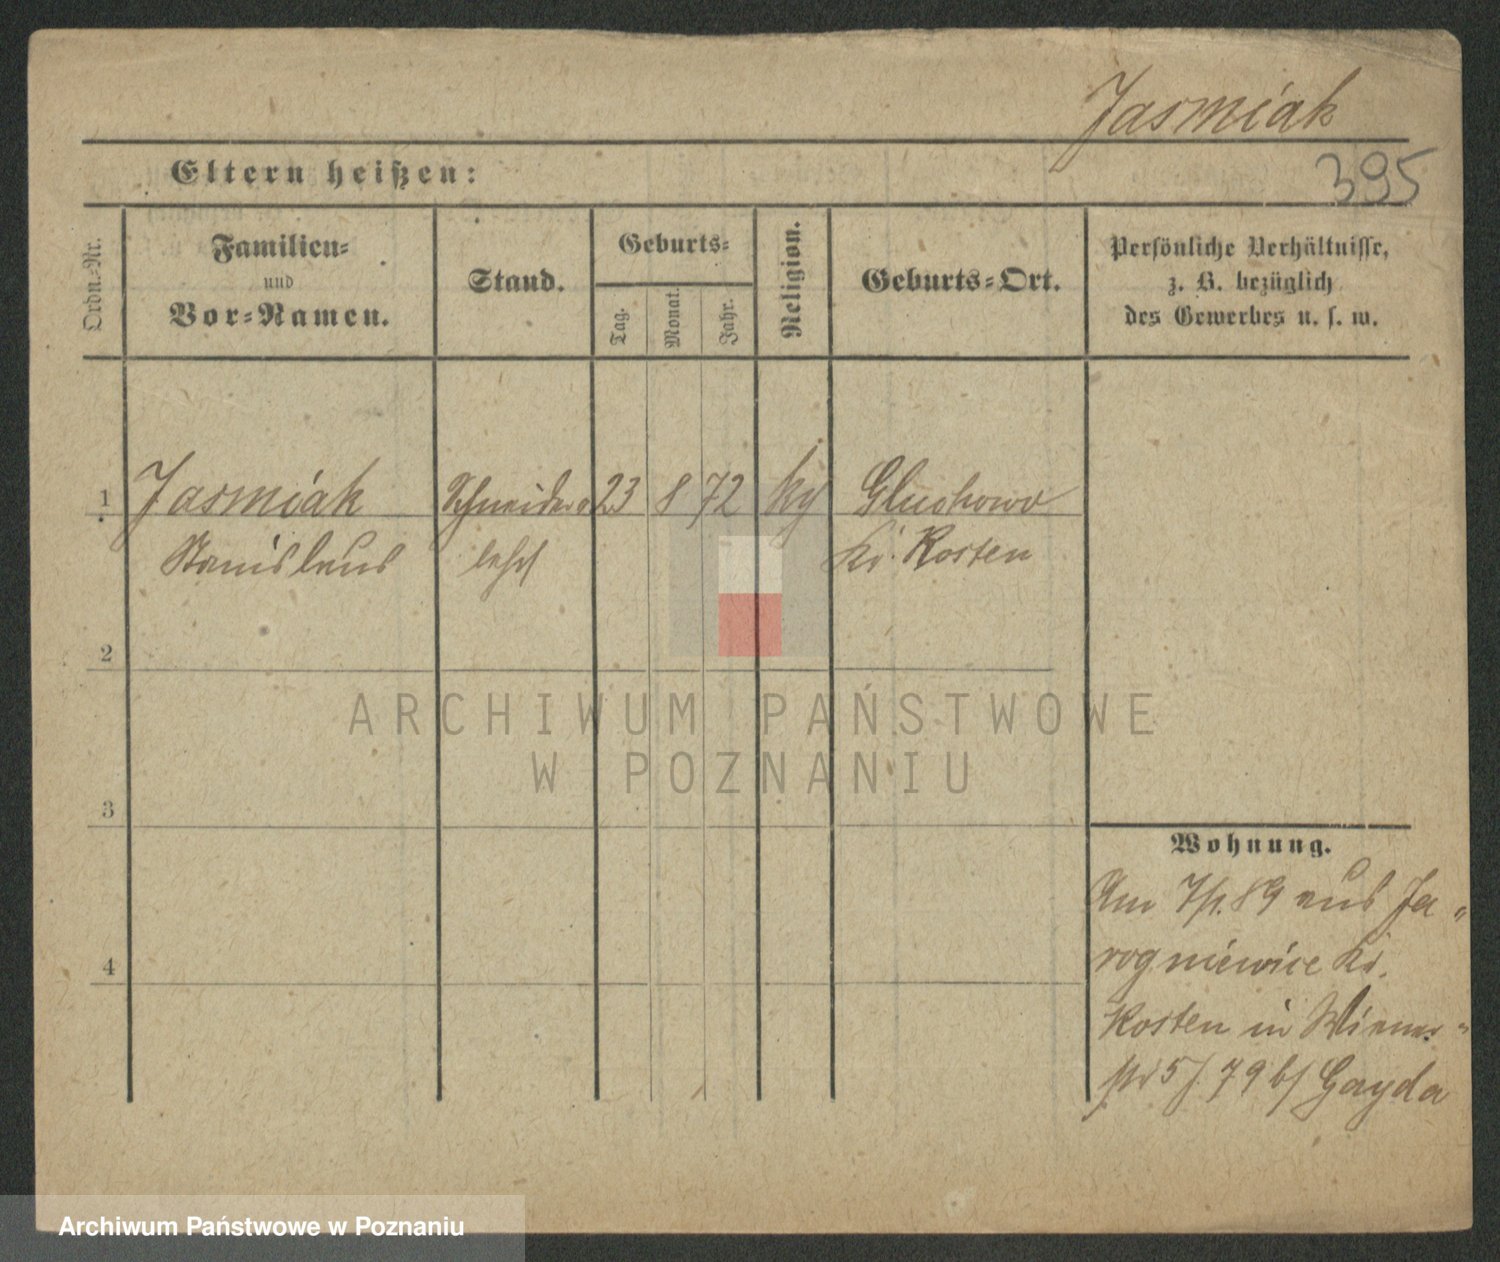 Jasmiak
Eltern heißen:
395
Ordn.-Nr.
Familien-
und
Vor-Namen.
Stand.
Geburts-
Tag.
Monat.
Jahr.
Religion.
Geburts-Ort.
Persönliche Verhältnisse,
z. B. bezüglich
des Gewerbes u. s. w.
1 Jasmiak Schneider 23 8 72 Gluchowo
Stanislaus Kr. Kosten
2
ARCHIWUM PAŃSTWOWE
W POZNANIU
3
Wohnung.
Am 89 aus Ja„
rogniewice Kr.
4
Kosten in
79 Gayda
Archiwum Państwowe w Poznaniu